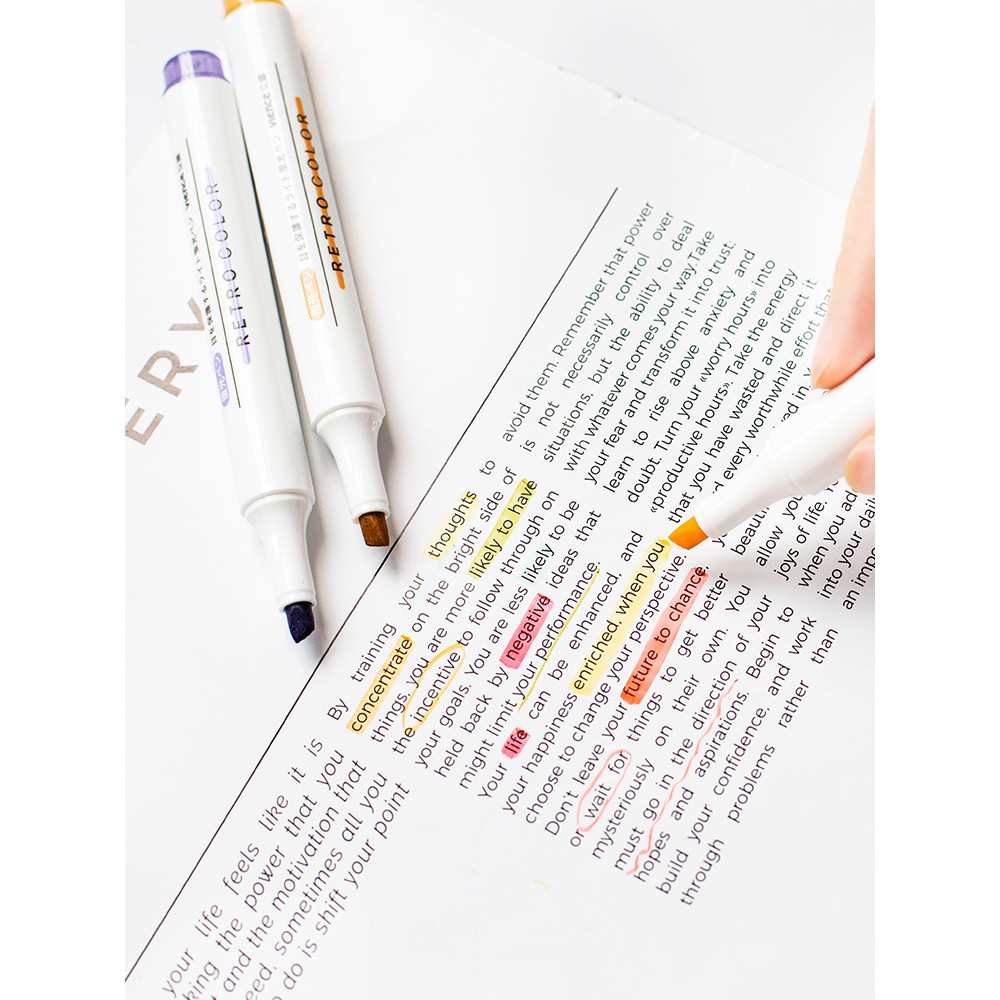 vience 立誼
目を保護するライト蛍光ペン
RETRO COLOR
蛍光ペン
vience 立誼
目を保護するライト蛍光ペン
RETRO COLOR
蛍光ペン
ERY
your life feels like it is
king the power that you
t and the motivation that
eed, sometimes all you
do is shift your point
By training your thoughts to
concentrate on the bright side of
things, you are more likely to have
the incentive to follow through on
your goals. You are less likely to be
held back by negative ideas that
might limit your performance.
Your life can be enhanced, and
your happiness enriched, when you
choose to change your perspective.
Don't leave your future to chance,
or wait for things to get better
mysteriously on their own. You
must go in the direction of your
hopes and aspirations. Begin to
build your confidence, and work
through problems rather than
avoid them. Remember that power
is not necessarily control over
situations, but the ability to deal
with whatever comes your way. Take
your fear and transform it into trust.
learn to rise above anxiety and
doubt. Turn your «worry hours» into
«productive hours». Take the energy
that you have wasted and direct it
every worthwhile effort that
ed in
beauti
allow yo
joys of life.
when you ad
into your dail
an impo